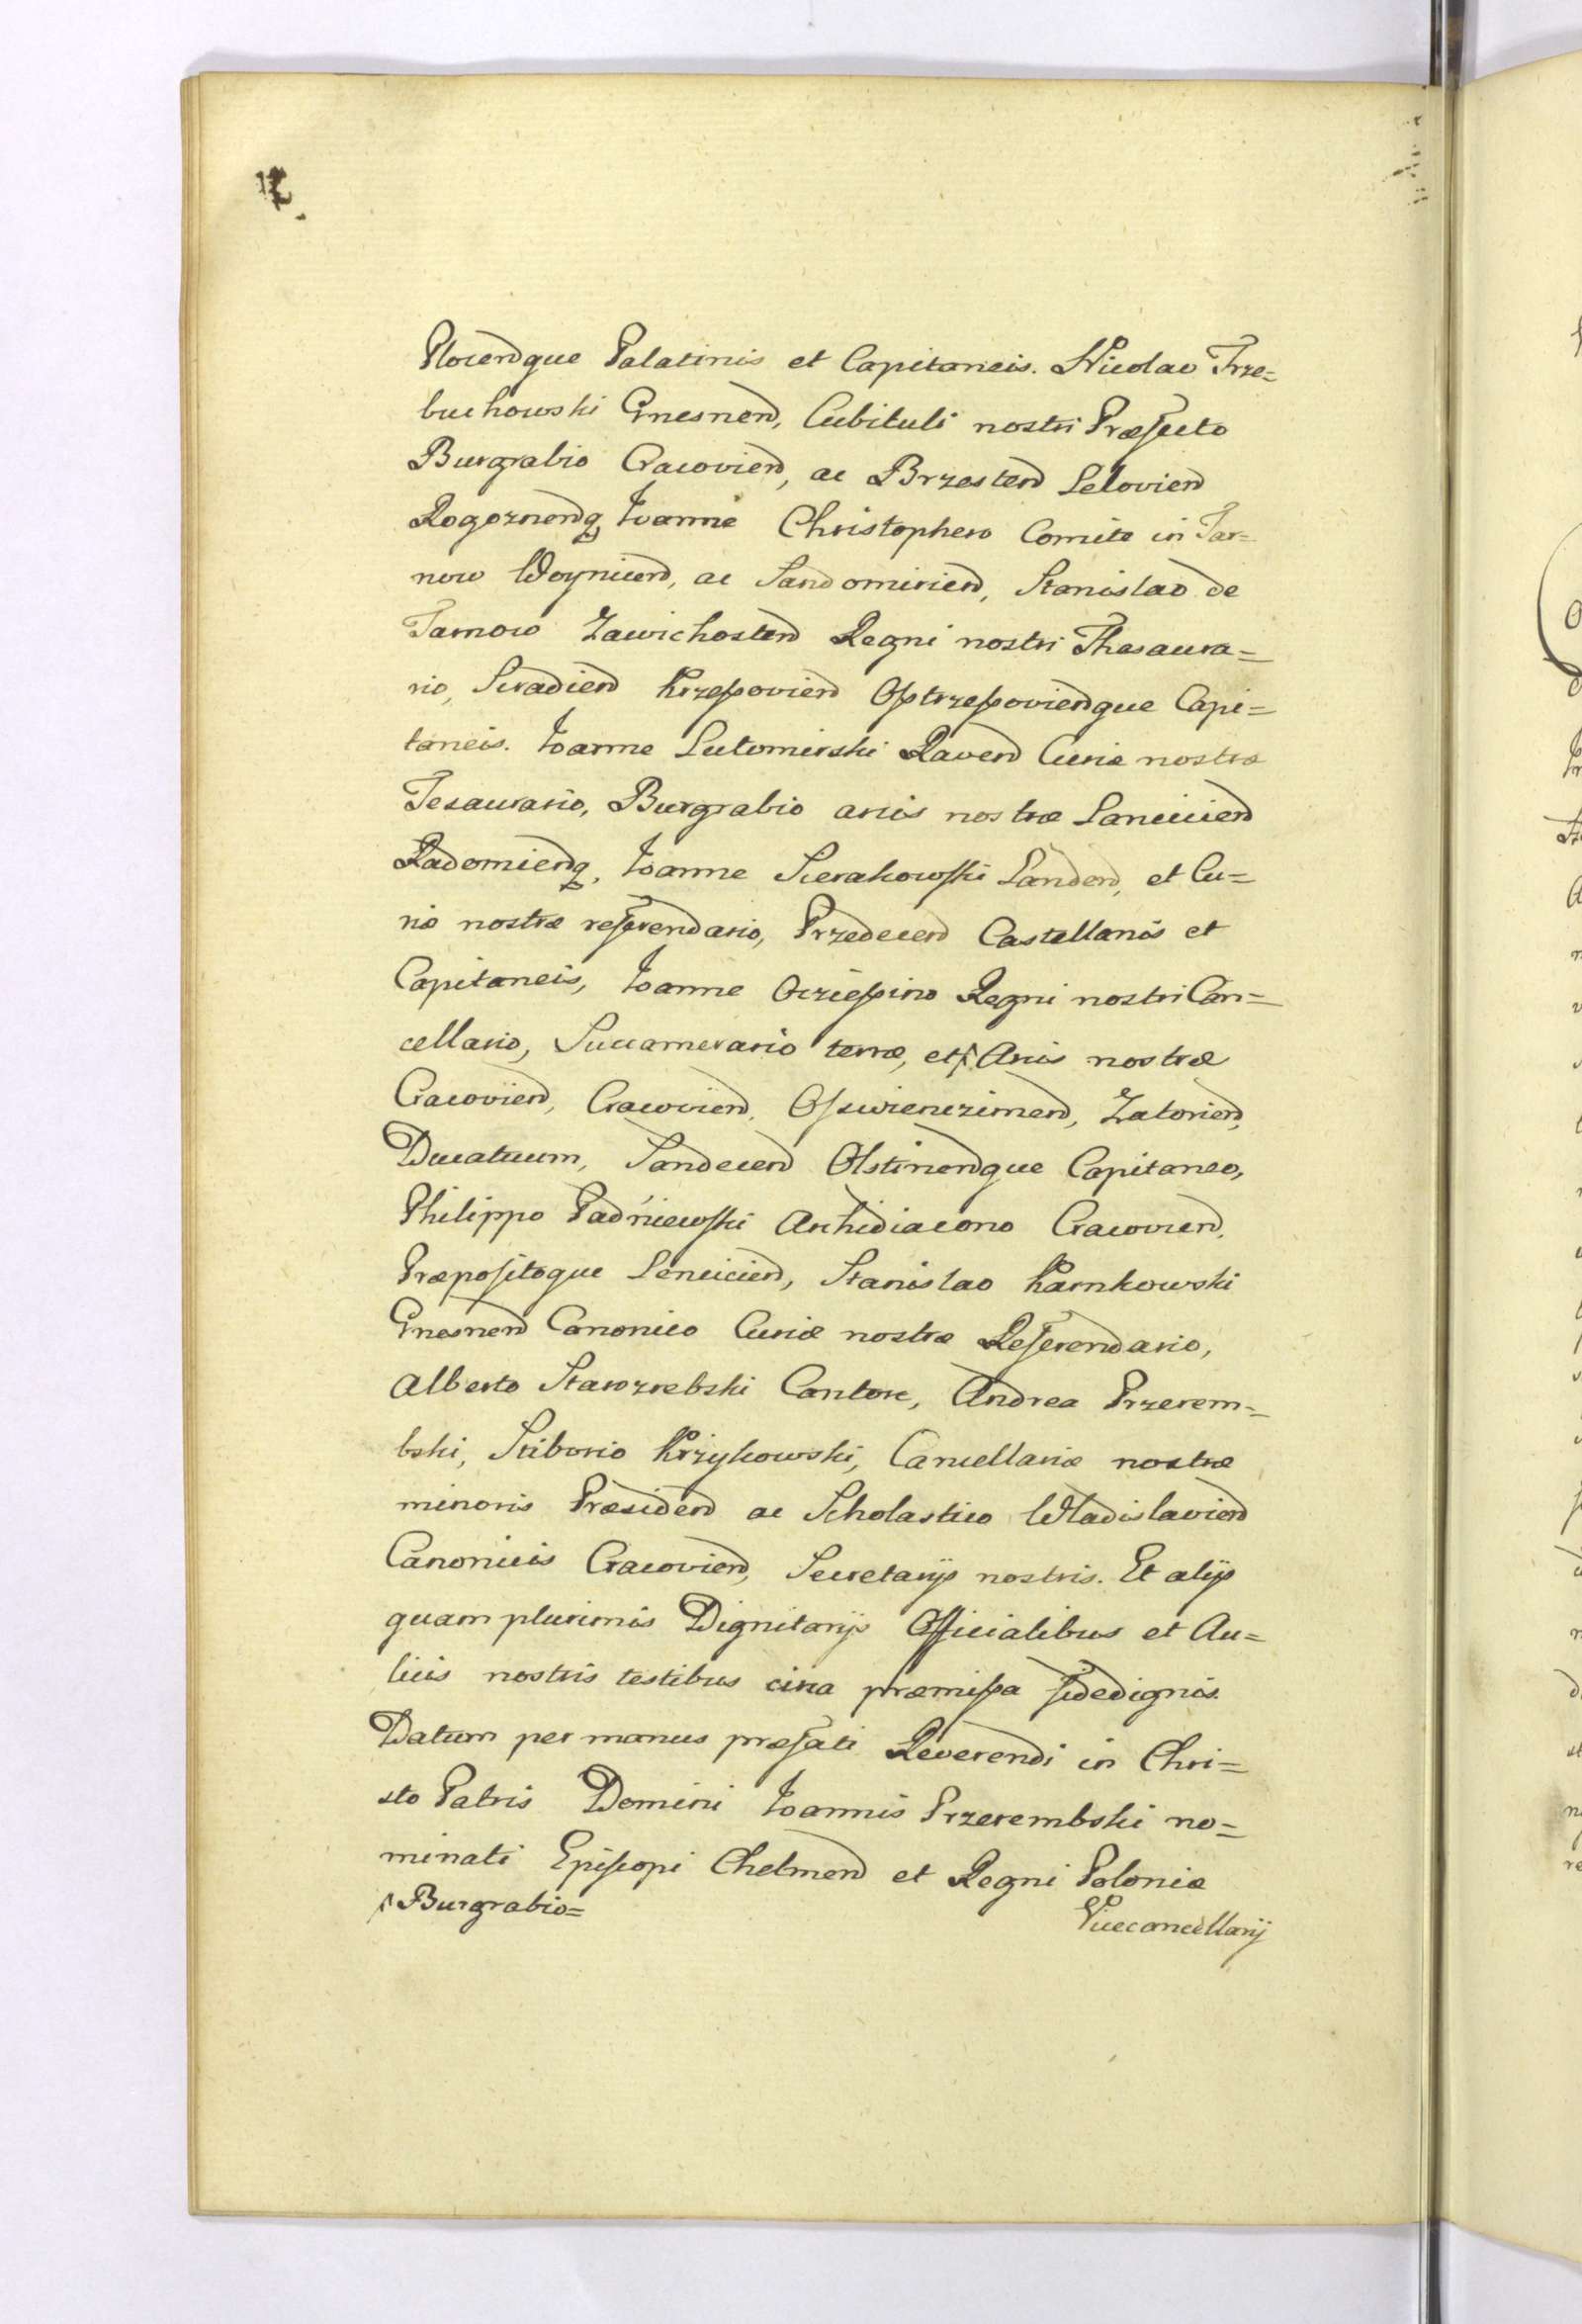 Plocen̄que Palatinis et Capitaneis. Nicolao Trze=
buchowski Gnesnen̄, Cubituli nostri Præfecto
Burgrabio Cracovien̄, ac Brzesten̄ Lelovien̄
Rogoznen̄q, Ioanne Christophero Comite in Tar=
now Woynicen̄, ac Sandomirien̄, Stanislao de
Tarnow Zawichosten̄ Regni nostri Thesaura=
rio, Siradien̄ Krzeſsovien̄ Oſstrzeſsovien̄que Capi=
taneis. Ioanne Lutomirski Raven̄ Curiæ nostræ
Tesaurario, Burgrabio arcis nostræ Lanciciien̄
Radomien̄q, Ioanne Sierakowſki Landen̄, et Cu=
riæ nostræ referendario, Przedecen̄ Castellanis et
Capitaneis, Ioanne Oczieſsino Regni nostri Can=
cellario, Succamerario terræ, et Arcis nostræ
Cracovien̄, Cracovien̄, Oſswiencziemen̄, Zatorien̄,
Ducatuum, Sandecen̄ Olstinen̄que Capitaneo,
Philippo Padniewſki Archidiacono Cracovien̄,
Præpoſitoque Lencicien̄, Stanislao Karnkowski
Gnesnen̄ Canonico Curiæ nostræ Referendario,
Alberto Starozrebski Cantore, Andrea Przerem=
bski, Sciborio Krzykowski, Cancellariæ nostræ
minoris Præsiden̄ ac Scholastico Wladislavien̄
Canonicis Cracovien̄, Secretarijs nostris. Et alijs
quam plurimis Dignitarijs Officialibus et Au=
licis nostris testibus circa præmiſsa fidedignis.
Datum per manus præfati Reverendi in Chri=
sto Patris Domini Ioannis Przerembski no=
minati Epiſcopi Chelmen̄ et Regni Poloniæ
Burgrabio=
Vicecancellarij